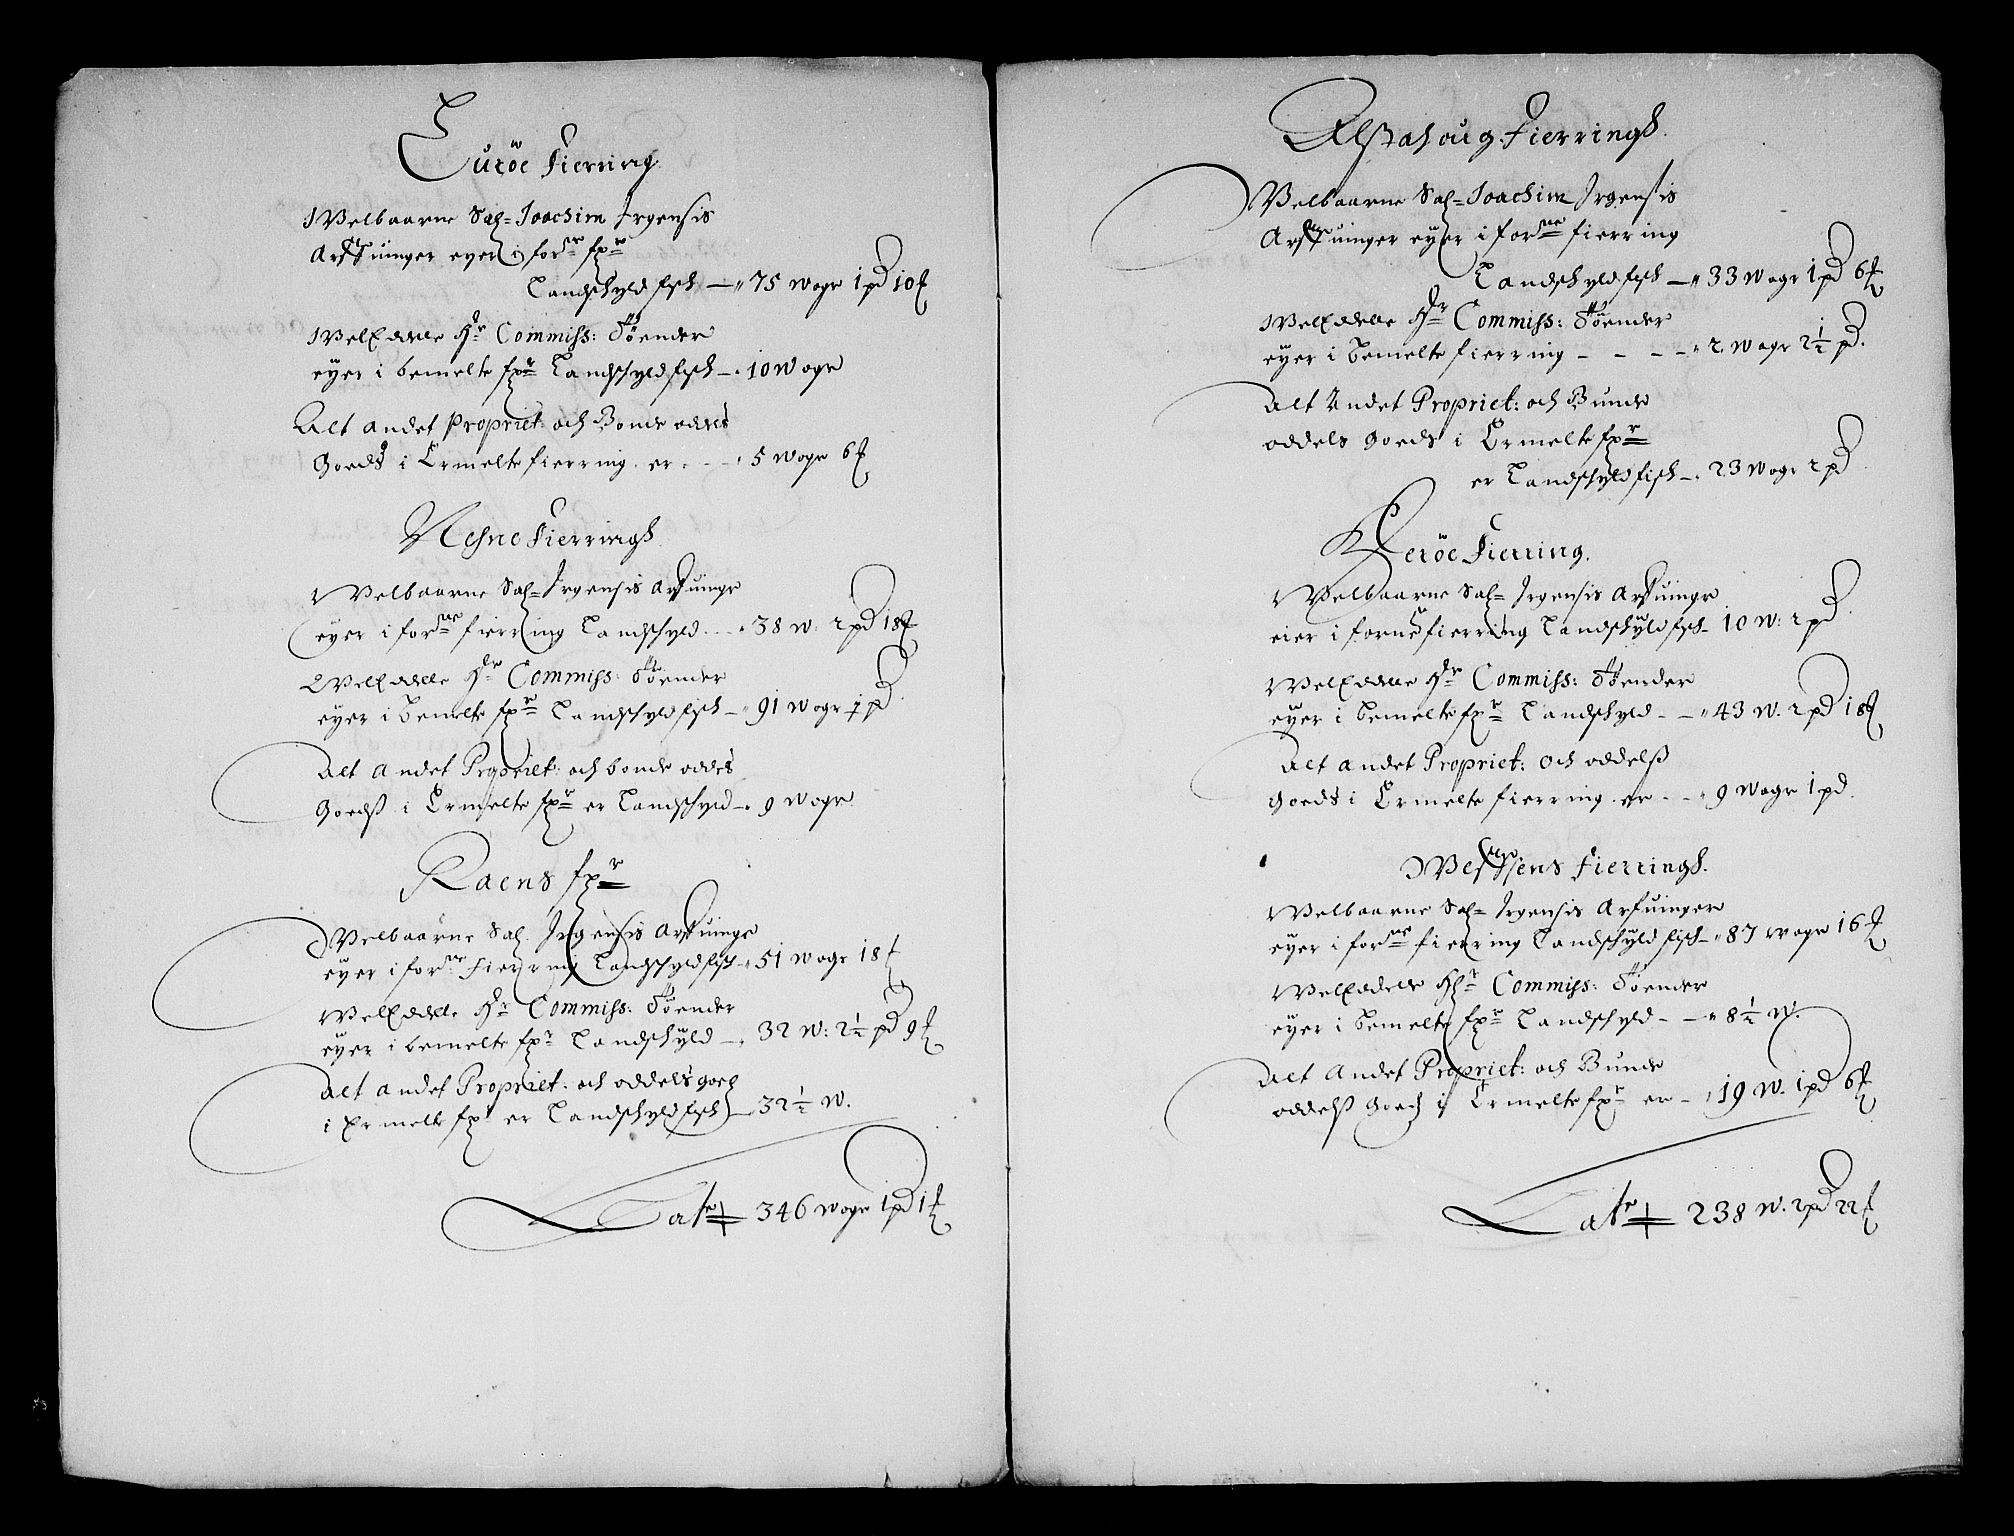 Luröe Fierring
Welbaarne Sal= Joachim Jrgensis
Arffuinger eyer i forne fxr
Landschyld fisch — 75 Woger 1 pd 10 ℔
WelEdelle Hr Commiss: Töender
eyer i bemelte fxr Landschyld fisch — 10 Woger
Alt andet Propriet: och Bonde oddels
Goeds i Ermelte fierring er - - 5 Woger 6 ℔
Nesne Fierringh
Welbaarne Sal= Jrgensis Arffuinge
eyer i forne fierring Landschyld - - 38 W: 2 pd 18 ℔
WelEdelle Hr Commiss: Töender
eyer i bemelte fxr Landschyld fisch — 91 Woger 1 pd
Alt andet Propriet: och bonde oddels
Goedß i Ermelte fxr er Landschyld — 9 Woger
Raens fxr
Welbaarne Sal. Jrgensis Arffuinge
eyer i forne Fierring Landschyld fisch — 51 Woger 18 ℔
WelEdelle Hr Commiss: Töender
eyer i bemelte fxr Landschyld — 32 W: 2½ pd 9 ℔
Alt andet Propriet: och oddels goeds
i Ermelte fxr er Landschyld fisch — 32½ W.
Later 346 Woger 1 pd 1 ℔
Alstahoug Fierringh
Velbaarne Sal= Joachim Jrgensis
Arffuinger eyer i forne fierring
Landschyld fisch — 33 Woger 1 pd 6 ℔
WelEdelle Hr Commiss: Töender
eyer i bemelte fierring - - - - 2 Woger 2½ pd.
Alt Andet Propriet: och Bunde
oddels Goeds i Ermelte fxr
er Landschyld fisch — 23 Woger 2 pd
Heröe Fierring.
Welbaarne Sal= Jrgensis Arffuinge
eier i forne fierring Landschyld fisch - 10 W: 2 pd
WelEdelle Hr Commiss: Töender
eyer i bemelte fxr Landschyld - — 43 W. 2 pd 18 ℔
Alt andet Propriet: och oddelß
Goeds i Ermelte fierring er - - 9 Woger 1 pd.
Wefssens Fierringh.
Welbaarne Sal= Jrgensis Arfuinger
eyer i forne fierring Landschyld fisch — 87 Woger 16 ℔
WelEdelle Hr Commiss: Töender
eyer i bemelte fxr Landschyld - — 8½ W.
Alt Andet Propriet: och Bunde
oddelß Goeds i Ermelte fxr er - 19 W. 1 pd 6 ℔
Later 238 W. 2 pd 22 ℔